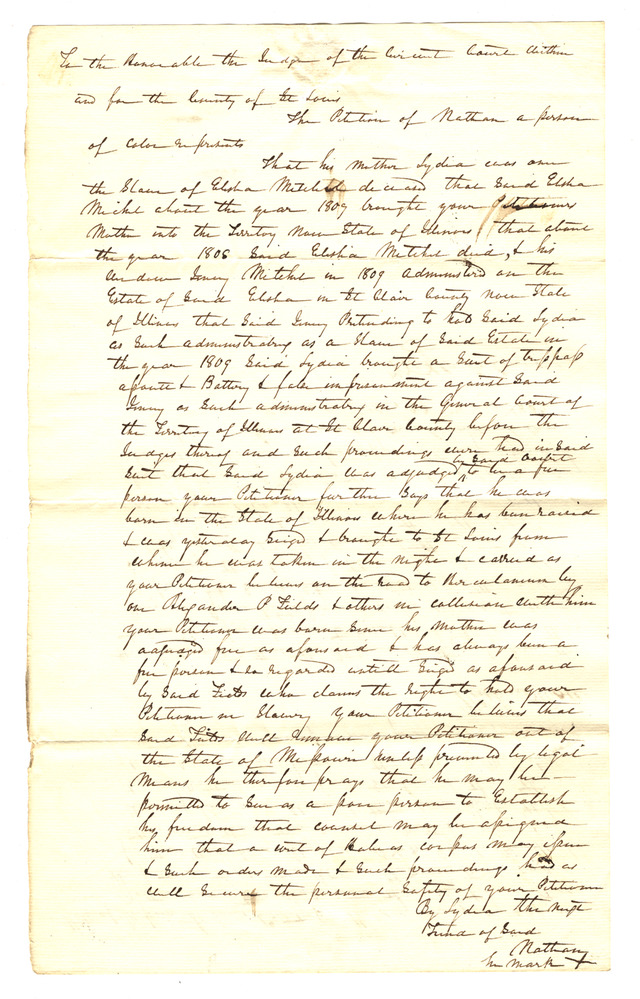 To the Honorable the Judge of the Circuit Court within
and for the County of St Louis
The Petition of Nathan a person
of color represents
That his Mother Lydia was one
the Slave of Elisha Mitchel deceased that Said Elisha
Michel about the year 1809 brought your Petitioners
Mother into the Territory Now State of Illinois, that about
the year 1808 Said Elisha Mitchel died, & his
Widow Jinny Mitchel in 1809 Administerd on the
Estate of Said Elisha in St Clair County Now State
of Illinois that Said Jinny Pretending to hold Said Lydia
as Such administratrix as a Slave of Said Estate in
the year 1809 Said Lydia brought a Suit of trespass
assault & Battery & false imprisonment against Said
Jinny as Such administratrix in the General Court of
the Territory of Illinois at St Clair County before the
Judges thereof and Such proceedings were had in Said
Suit that Said Lydia was adjudged by Said Court to be a free
person your Petitioner further Says that he was
born in the State of Illinois where he has been raised
& was yesterday Siezd & brought to St Louis from
whence he was taken in the night & carried as
your Petitioner believes on the Road to Herculaneum by
one Alexander P Fields & others in collision with him
your Petitioner was born Since his Mother was
adjudged free as aforesaid & has always been a
free person & so regarded untill Siezd as aforesaid
by Said Fields who claims the right to hold your
Petitioner in Slavery your Petitioner believes that
Said Fields will remove your Petitioner out of
the State of Missouri unless prevented by legal
Means he therefore prays that he may be
permitted to Sue as a poor person to Establish
his freedom that counsel may be assigned
him that a writ of Habeas corpus may issue
& Such orders made & Such proceedings had as
will Secure the personal Safety of your Petitioner
By Lydia the next
friend of Said
Nathan
her mark +